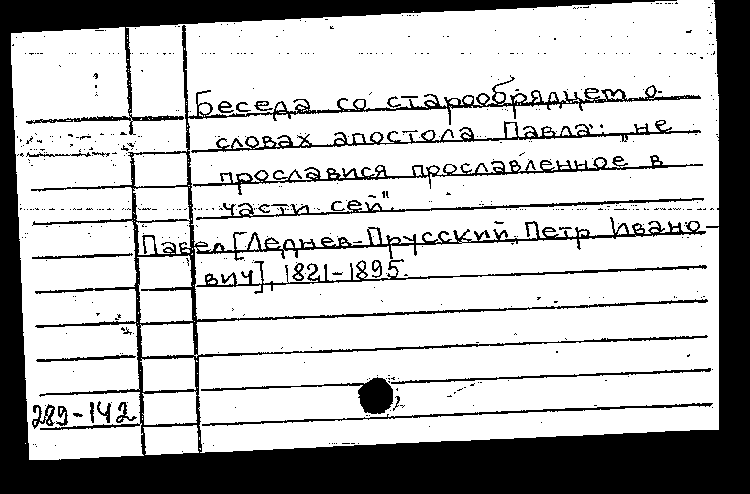 Беседа со старообрядцем о
словах апостола Павла: „не
прославися прославленное в
части сей".
Павел [Леднев-Прусский, Петр Ивано-
вич], 1821-1895.
289-142